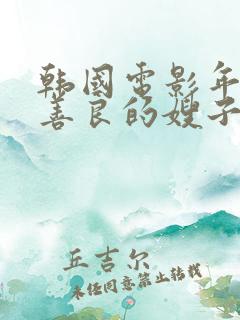 韩国电影年
善良的嫂子
丘吉尔
未经同意禁止转载